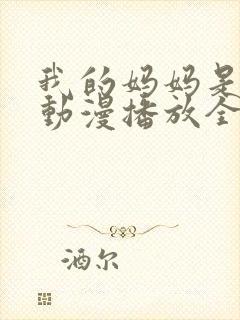 我的妈妈是
動漫播放全
酒尔